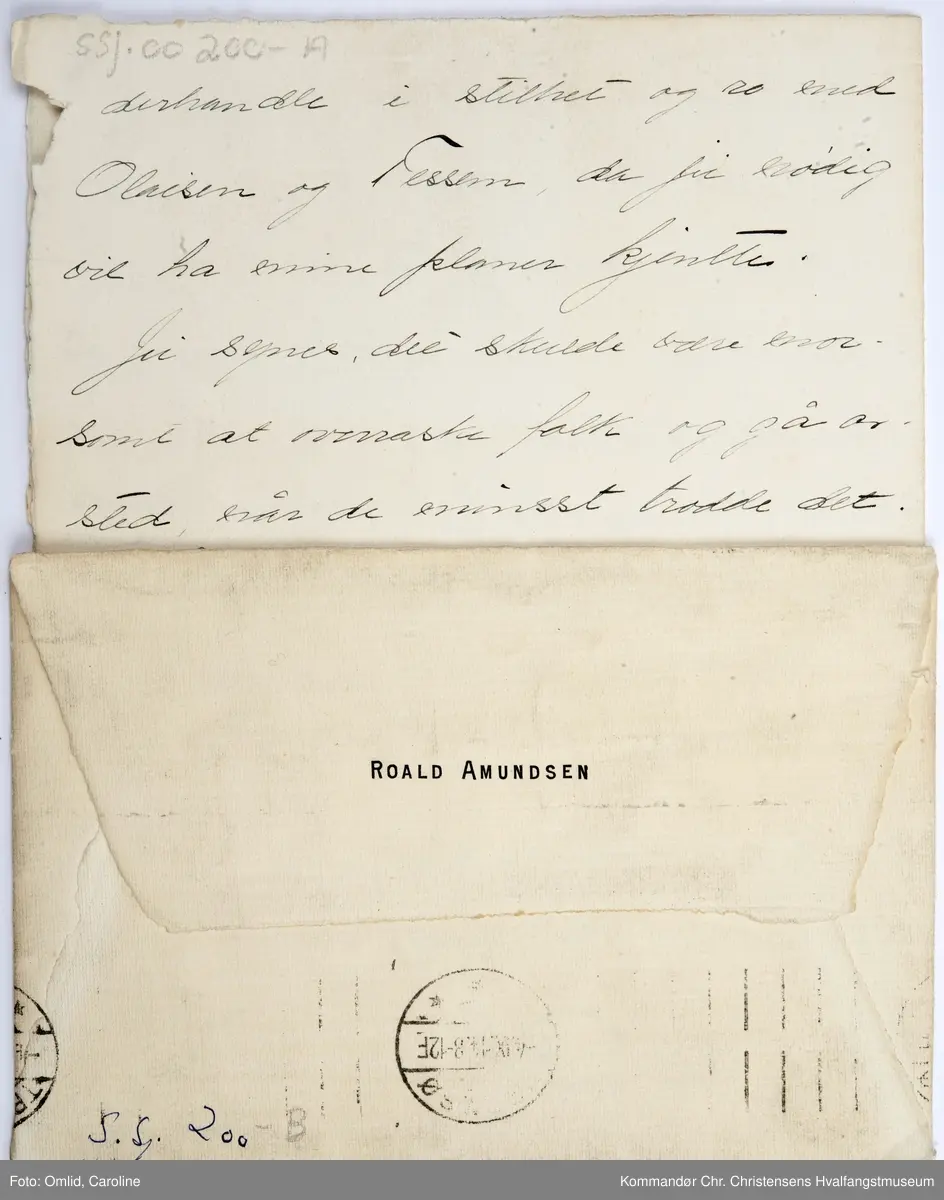 SSJ.00 200-A
derhandle i stilhet og ro med
Olaisen og Tessem, da jei nödig
vil ha mine planer kjentte.
Jei synes, det skulde være mor-
somt at overraske folk og gå av-
sted, når de minsst trodde det.
ROALD AMUNDSEN
8-12F
S.S. 200 B
Foto: Omlid, Caroline
Kommandør Chr. Christensens Hvalfangstmuseum